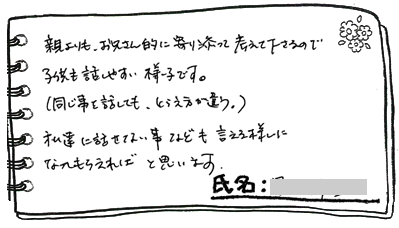 親よりも、お兄さん的に寄り添って考えて下さるので
子供も話しやすい様子です。
(同じ事を話しても、とらえ方が違う。)
私達に話せない事なども言える様に
なってもらえればと思います。
氏名: